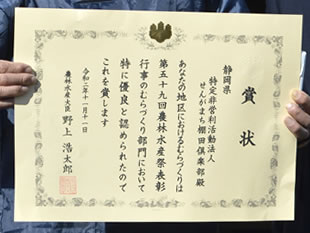 賞状
静岡県
特定非営利活動法人
せんがまち棚田倶楽部殿
あなたの地区におけるむらづくりは
第五十九回農林水産祭表彰
行事のむらづくり部門において
特に優良と認められたので
これを賞します
令和二年十一月十一日
農林水産大臣 野上浩太郎